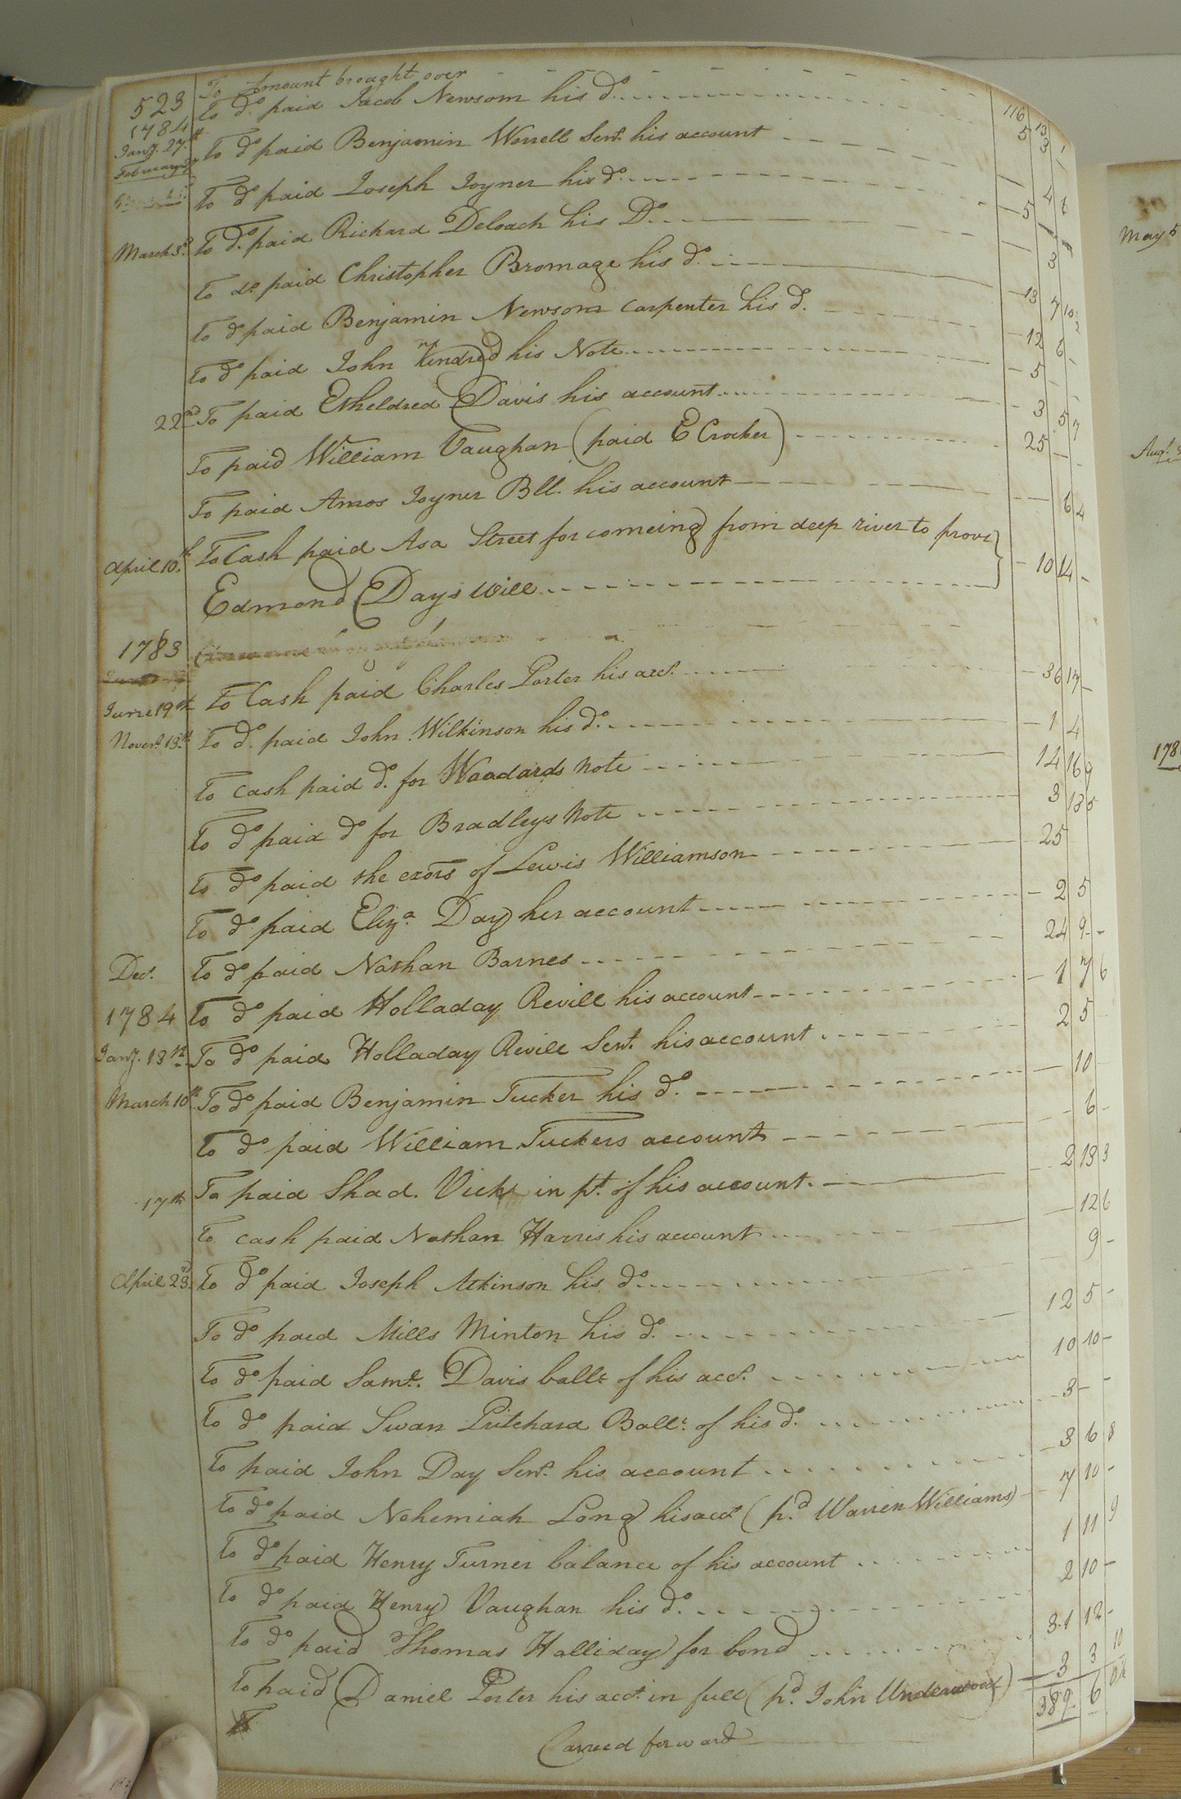 523 To Amount brought over 116 13 1
1784 To do. paid Jacob Newsom his do. 5 3
Jany. 27th To do paid Benjamin Worrell Senr. his account
February To do paid Joseph Joyner his do. 4 6
To do. paid Richard Deloach his Do. 5
March 3d. To do paid Christopher Bromage his do. 3
To do paid Benjamin Newsom carpenter his do. 13 7 10
To do paid John Kindred his Note 12 6
22nd To paid Etheldred Davis his account 5
To paid William Vaughan (paid E Crocker) 3 5 7
To paid Amos Joyner Bll. his account 25
6 4
April 10th To Cash paid Asa Street for comeing from deep river to prove
Edmond Days will 10 14 -
1783
June 19th To Cash paid Charles Porter his acct. 36 17 -
Novem. 13th To do. paid John Wilkinson his do. 1 4
To cash paid do. for Woodards Note 14 16 9
To do paid do for Bradleys Note 3 13 5
To do paid the exors of Lewis Williamson 25
To do paid Eliza. Day her account 2 5
Dec. To do paid Nathan Barnes 24 9 -
1784 To do paid Holladay Revill his account 1 7 6
Jany. 13th To do paid Holladay Revill Senr. his account 2 5
March 10th To do paid Benjamin Tucker his do. 10
To do paid William Tuckers account 6 -
17th To paid Shad. Vick in pt. of his account 2 13 3
To cash paid Nathan Harris his account 12 6
April 23d. To do paid Joseph Atkinson his do. 9 -
To do paid Mills Minton his do. 12 5 -
To do paid Saml. Davis balle of his acct. 10 10 -
To do paid Swan Pritchard Balle. of his do. 3 - -
To paid John Day Senr. his account 3 6 8
To do paid Nehemiah Long his acct (pd. Warren Williams) 7 10 -
To do paid Henry Turner balance of his account 1 11 9
To do paid Henry Vaughan his do. 2 10 -
To do paid Thomas Halliday for bond 31 12 -
To paid Daniel Porter his acct. in full (pd. John Underwood) 3 3 10
389 6
Carried forward
May 5
Augt.
178